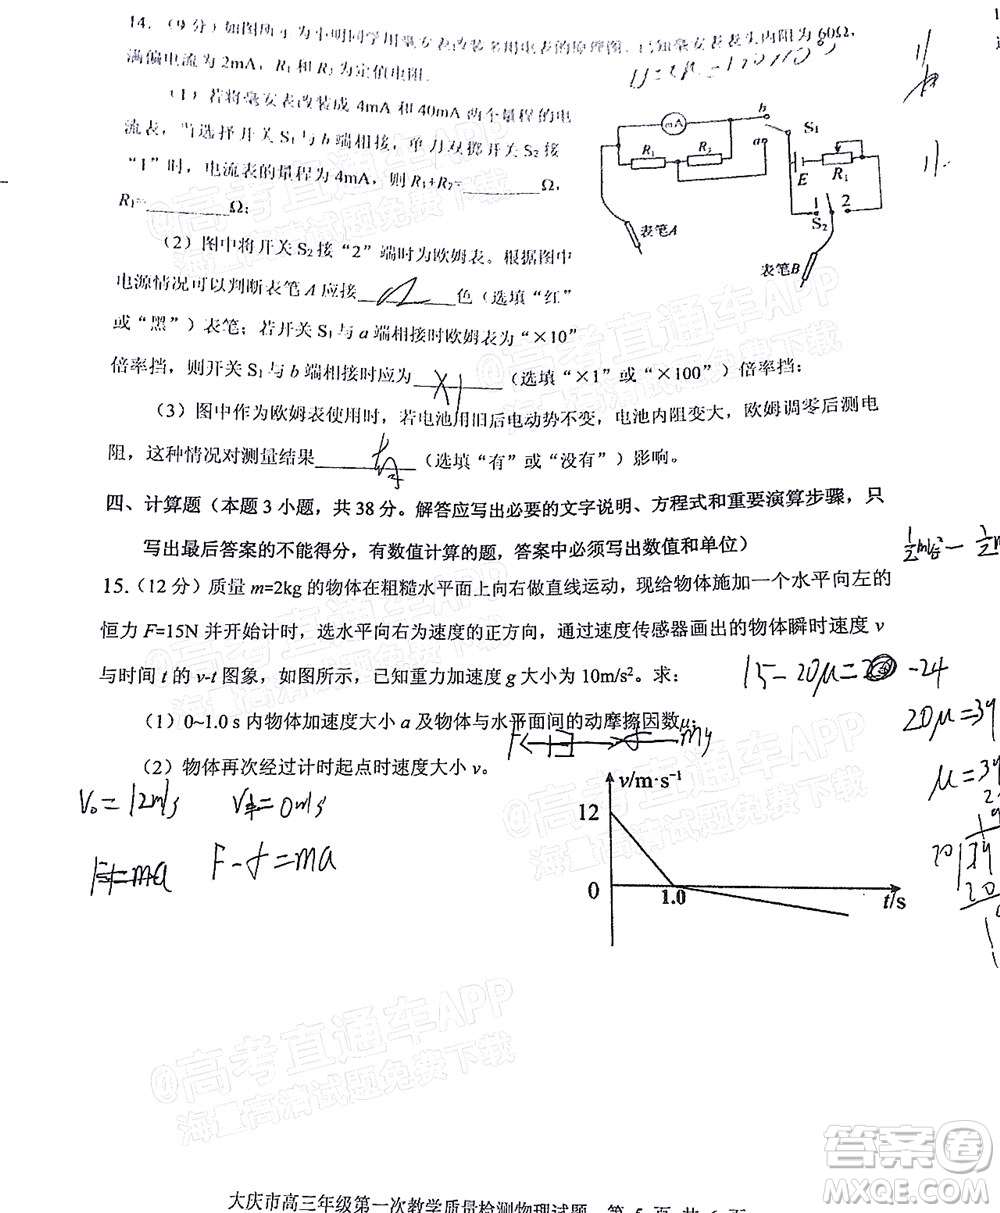 14.（9 分）如图所示为小明同学用毫安表改装多用电表的原理图。已知毫安表表头内阻为 60Ω,
满偏电流为 2mA，R₁ 和 R₂ 为定值电阻.
（1）若将毫安表改装成 4mA 和 40mA 两个量程的电
流表，当选择开关 S₁ 与 b 端相接，单刀双掷开关 S₂ 接
“1”时，电流表的量程为 4mA，则 R₁+R₂=______Ω,
R₁=______Ω;
（2）图中将开关 S₂ 接“2”端时为欧姆表。根据图中
电源情况可以判断表笔 A 应接______色（选填“红”
或“黑”）表笔；若开关 S₁ 与 a 端相接时欧姆表为“×10”
倍率挡，则开关 S₁ 与 b 端相接时应为 ×1 （选填“×1”或“×100”）倍率挡;
（3）图中作为欧姆表使用时，若电池用旧后电动势不变，电池内阻变大，欧姆调零后测电
阻，这种情况对测量结果______（选填“有”或“没有”）影响。
mA
R₁
R₂
b
a
S₁
E
R₁
1
2
S₂
表笔A
表笔B
四、计算题（本题 3 小题，共 38 分。解答应写出必要的文字说明、方程式和重要演算步骤，只
写出最后答案的不能得分，有数值计算的题，答案中必须写出数值和单位）
15.（12 分）质量 m=2kg 的物体在粗糙水平面上向右做直线运动，现给物体施加一个水平向左的
恒力 F=15N 并开始计时，选水平向右为速度的正方向，通过速度传感器画出的物体瞬时速度 v
与时间 t 的 v-t 图象，如图所示，已知重力加速度 g 大小为 10m/s²。求：
（1）0~1.0 s 内物体加速度大小 a 及物体与水平面间的动摩擦因数μ;
（2）物体再次经过计时起点时速度大小 v。
F
mg
V₀=12m/s
=0m/s
F-f=ma
15-20μ=
-24
20μ=39
v/m·s⁻¹
12
0
1.0
t/s
@高考直通车APP
海量高清试题免费下载
@高考直通车APP
海量高清试题免费下载
@高考直通车APP
海量高清试题免费下载
答案卷
MXQE.COM
大庆市高三年级第一次教学质量检测物理试题 第 5 页 共 6 页